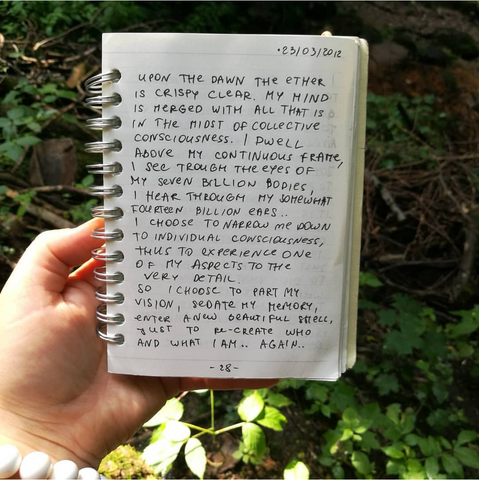 •23/03/2012
UPON THE DAWN THE ETHER
IS CRISPY CLEAR. MY MIND
IS MERGED WITH ALL THAT IS
IN THE MIDST OF COLLECTIVE
CONSCIOUSNESS. I DWELL
ABOVE MY CONTINUOUS FRAME,
I SEE TROUGH THE EYES OF
MY SEVEN BILLION BODIES,
I HEAR THROUGH MY SOMEWHAT
FOURTEEN BILLION EARS..
I CHOOSE TO NARROW ME DOWN
TO INDIVIDUAL CONSCIOUSNESS,
THUS TO EXPERIENCE ONE
OF MY ASPECTS TO THE
VERY DETAIL.
SO I CHOOSE TO PART MY
VISION, SEDATE MY MEMORY,
ENTER A NEW BEAUTIFUL SHELL,
JUST TO RE-CREATE WHO
AND WHAT I AM.. AGAIN..
-28-